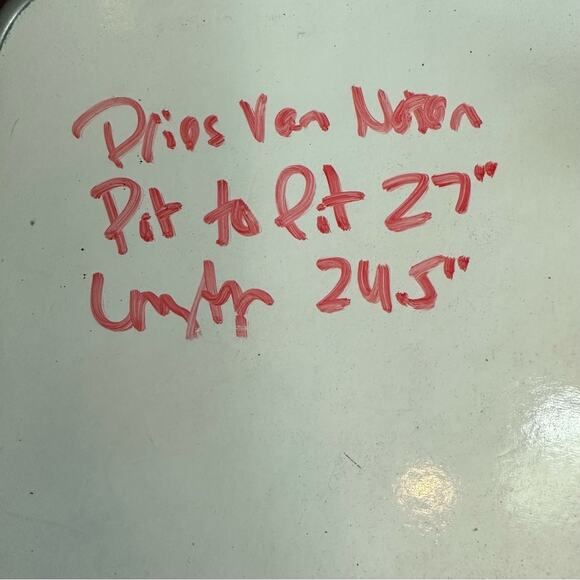 Dries Van Noten
Pit to Pit 27"
Length 24.5"